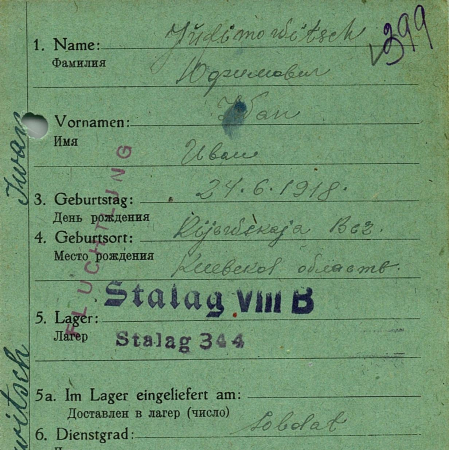 399
1. Name:
Фамилия
Юфимович
Iwan
Vornamen:
Имя
Иван
FLUCHTLUNG
3. Geburtstag: 24.6.1918.
День рождения
4. Geburtsort: Bez.
Место рождения Киевской область.
Stalag VIII B
5. Lager:
Лагерь
Stalag 344
5a. Im Lager eingeliefert am:
Доставлен в лагерь (число)
6. Dienstgrad: Soldat
witsch